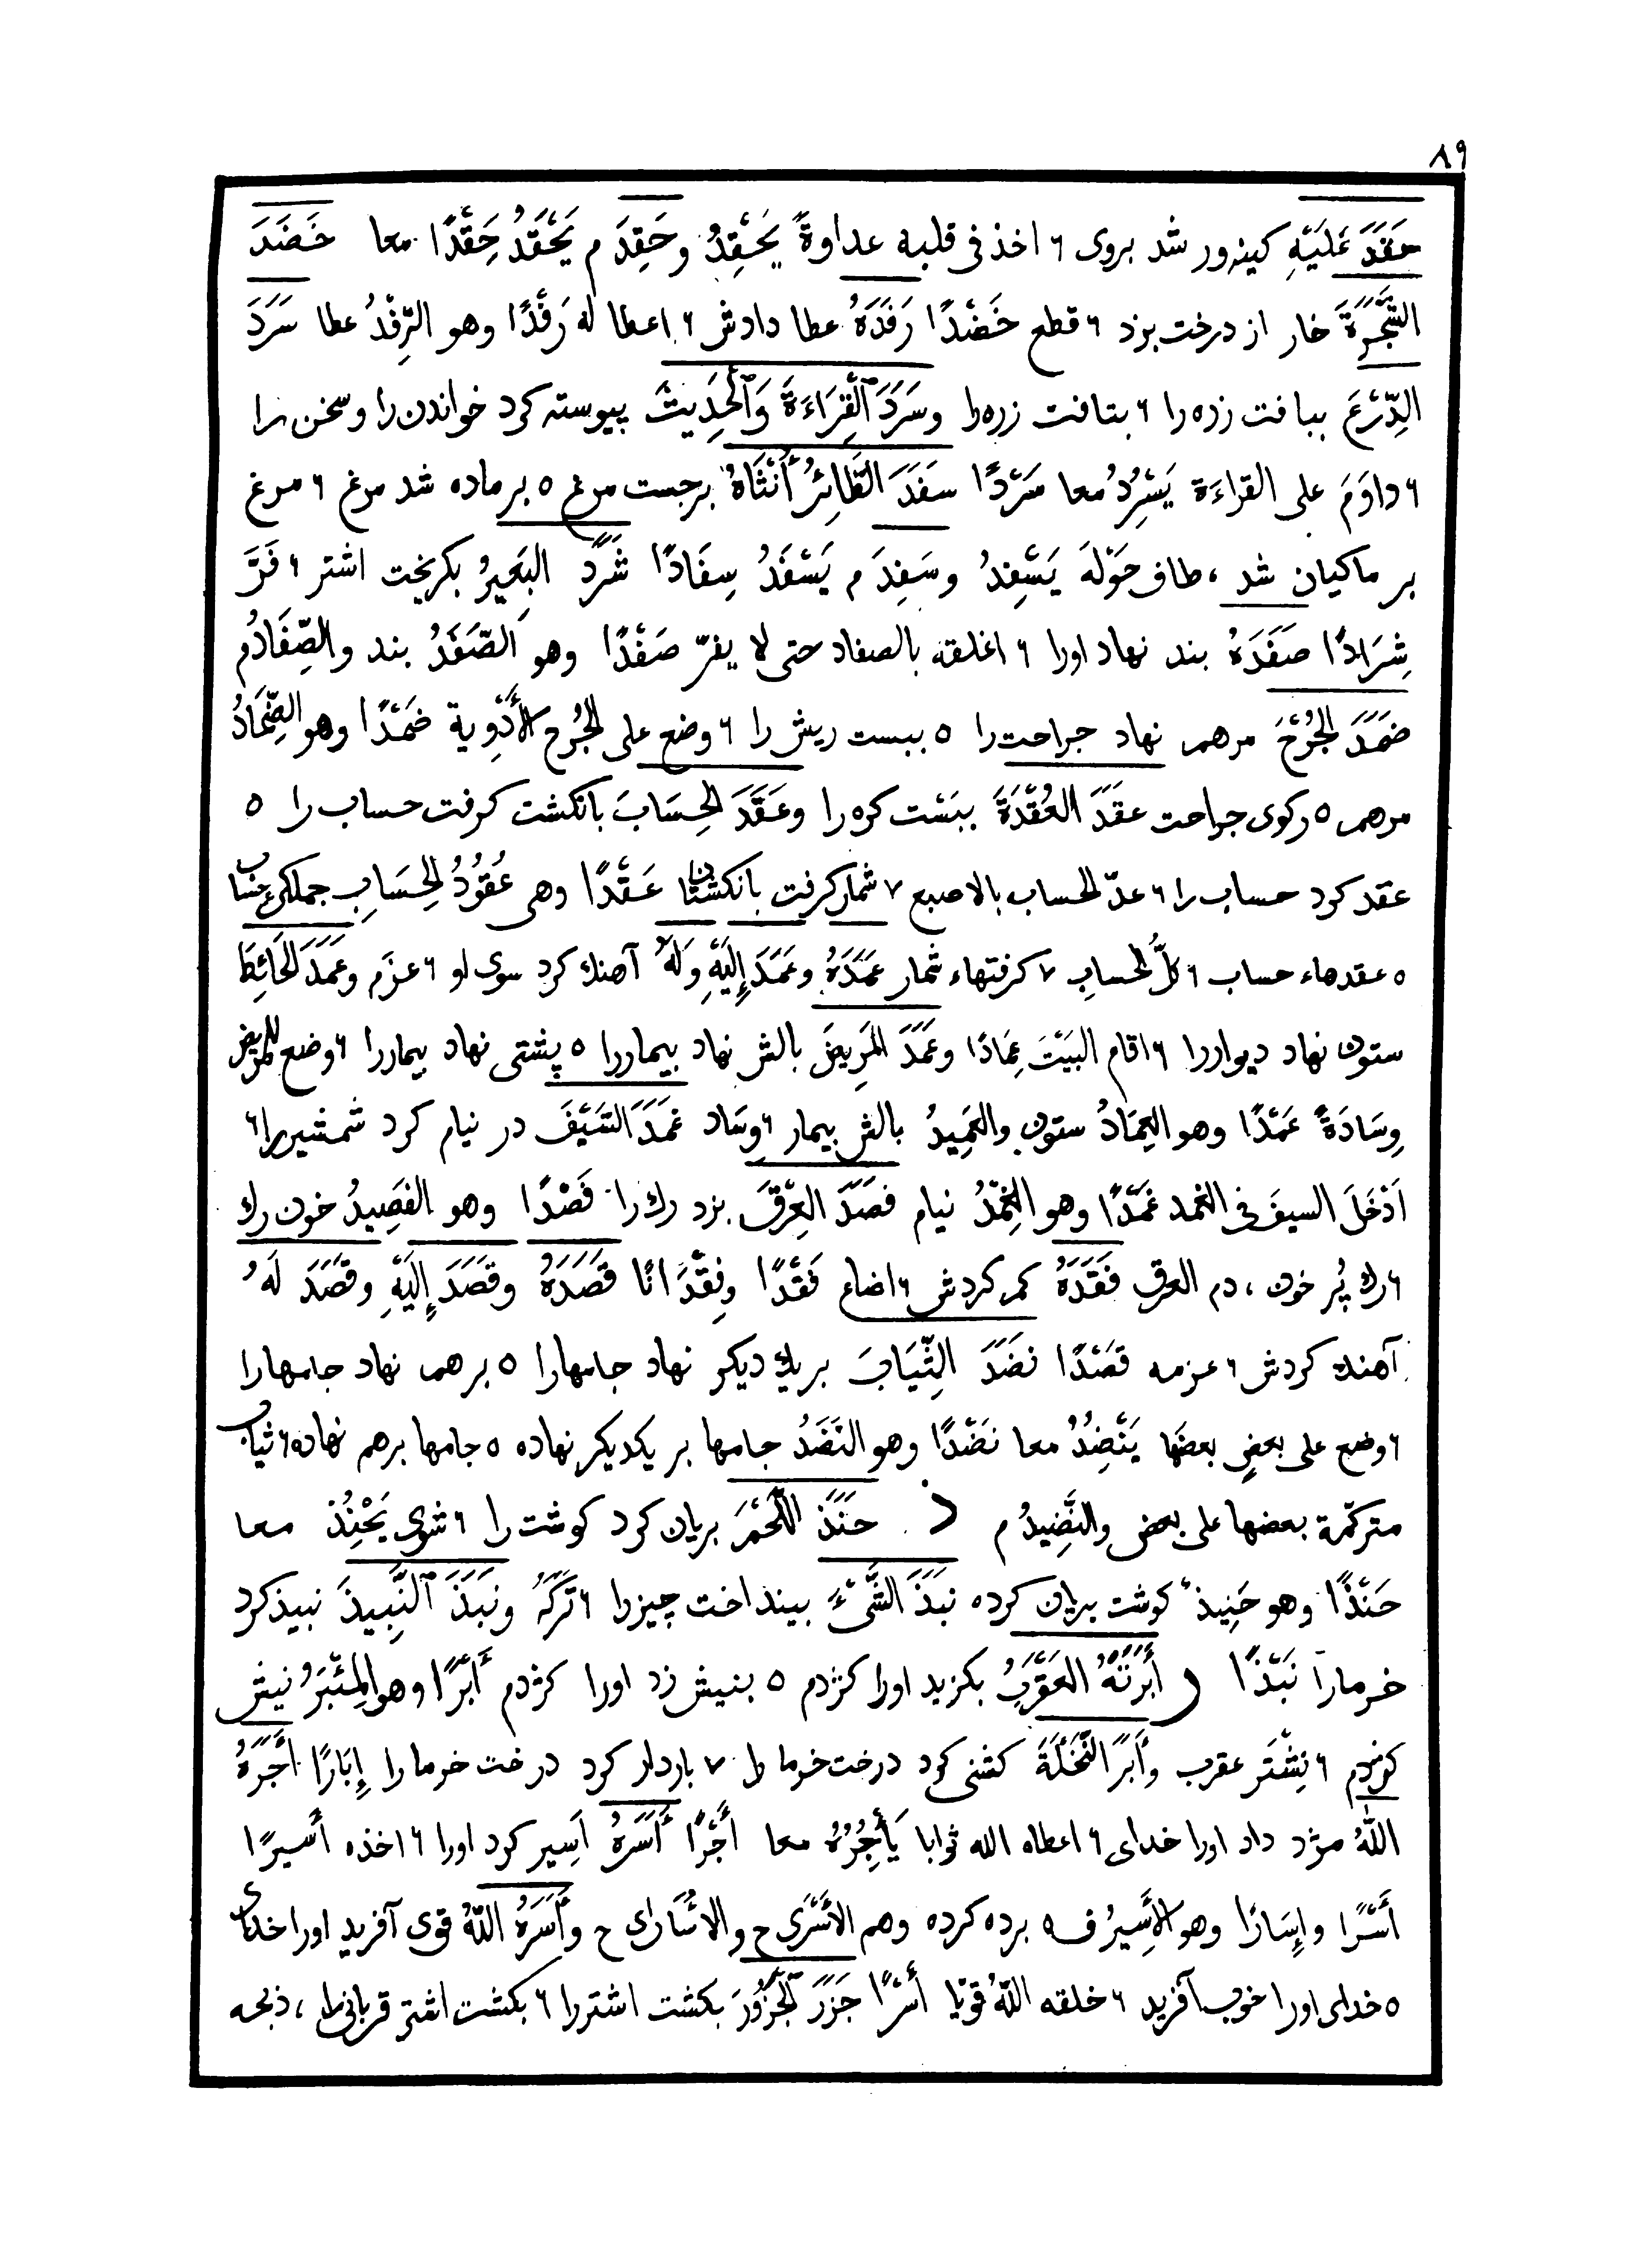 ٨٩
حَقَدَ عَلَيْهِ كينه‌ور شد بروى ٦ اخذ فى قلبه عداوةً يَحْقِدُ وحَقِدَ م يَحْقَدُ حِقْدًا معا خَضَدَ
الشَّجَرَةَ خار از درخت بزد ٦ قطع خَضْدًا رَفَدَهُ عطا دادش ٦ اعطا له رَفْدًا وهو الرِّفْدُ عطا سَرَدَ
الدِّرْعَ ببافت زره را ٦ بتافت زره را وسَرَدَ ٱلْقِرَاءَةَ وَٱلْحَدِيثَ پيوسته كرد خواندن را وسخن را
٦ داوَمَ على القراءَة يَسْرِدُ معا سَرْدًا سَفَدَ الطَّائِرُ أُنْثَاهُ برجست مرغ ٥ بر ماده شد مرغ ٦ مرغ
بر ماكيان شد ، طاف حَوْلَهَ يَسْفِدُ وسَفِدَ م يَسْفَدُ سِفَادًا شَرَدَ البَعِيرُ بكريخت اشتر ٦ فَرَّ
شِرَادًا صَفَدَهُ بند نهاد اورا ٦ اغلقه بالصفاد حتى لا يفرّ صَفْدًا وهو الصَّفَدُ بند والصِّفَادُم
ضَمَدَ الجُرْحَ مرهم نهاد جراحت را ٥ ببست ريش را ٦ وضع على الجُرْحِ الأَدْوِية ضَمْدًا وهو الضِّمَادُ
مرهم ٥ ركوى جراحت عقَدَ العُقْدَةَ ببَسْت كره را وعَقَدَ الحِسَابَ بانكشت كرفت حساب را ٥
عقد كرد حساب را ٦ عدّ الحساب بالاصبع ٧ شمار كرفت بانكشتان عَقْدًا وهى عُقُودُ الحِسَابِ جملكى حساب
٥ عقدهاء حساب ٦ كلُّ الحسابِ ٧ كرفتهاء شمار عَمَدَهُ وعَمَدَ إِلَيْهِ وَلَهُ آهنك كرد سوى او ٦ عزَم وعَمَدَ الحَائِطَ
ستون نهاد ديواررا ٦ اقام البَيْتَ عِمَادًا وعَمَدَ المَرِيضَ بالش نهاد بيماررا ٥ پشتى نهاد بيماررا ٦ وضع للمريض
وِسَادَةً عَمْدًا وهو العِمَادُ ستون والعَمِيدُ بالش بيمار ٦ وسَاد غَمَدَ السَّيْفَ در نيام كرد شمشيررا ٦
اَدْخَلَ السيفَ فى الغمد غَمْدًا وهو الغِمْدُ نيام فصَدَ العِرْقَ بزد رك را فَصْدًا وهو الفَصِيدُ خون رك
٦ رك پُر خون ، دم العرق فقَدَهُ كم كردش ٦ اضاع فَقْدًا وفِقْدَانًا قصَدَهُ وقصَدَ إِلَيْهِ وقصَدَ لَهُ
آهنك كردش ٦ عزمه قصْدًا نضَدَ الثِّيَابَ بريك ديكر نهاد جامهارا ٥ برهم نهاد جامهارا
٦ وضع على بعضٍ بعضَها يَنْضِدُ معا نضْدًا وهو النَضَدُ جامها بر يكديكر نهاده ٥ جامها برهم نهاده ٦ ثياب
متركمة بعضها على بعض والنَّضِيدُ م ذ حنَذَ اللَّحْمَ بريان كرد كوشت را ٦ شوى يَحْنِذُ معا
حَنْذًا وهو حَنِيذٌ كوشت بريان كرده نبَذَ الشَّىْءَ بينداخت چيزرا ٦ تَرَكَهُ ونبَذَ ٱلنَّبِيذَ نبيذ كرد
خرمارا نَبْذًا ر أَبَرَتْهُ العَقْرَبُ بكزيد اورا كژدم ٥ بنيش زد اورا كژدم أَبْرًا وهو المِئْبَرُ نيش
كژدم ٦ نِشْتَر عقرب وأَبَرَ النَّخْلَةَ كشنى كرد درخت خرما را ٧ باردار كرد درخت خرما را إِبَارًا أَجَرَهُ
اللّٰهُ مژد داد اورا خداى ٦ اعطاه الله ثوابا يَأْجِرُهُ معا أَجْرًا أَسَرَهُ اَسِير كرد اورا ٦ اخذه أسيرًا
أَسْرًا وإِسَارًا وهو الأَسِيرُ ف‍ه برده كرده وهم الأَسْرَى ح والاُسَارَاى ح وأَسَرَهُ اللّٰهُ قوى آفريد اورا خداى
٥ خداى اورا خوب آفريد ٦ خلقه اللّٰهُ قويّا أَسْرًا جَزَرَ الجَزُورَ بكشت اشتررا ٦ بكشت اشتر قربانى را ، ذبحه